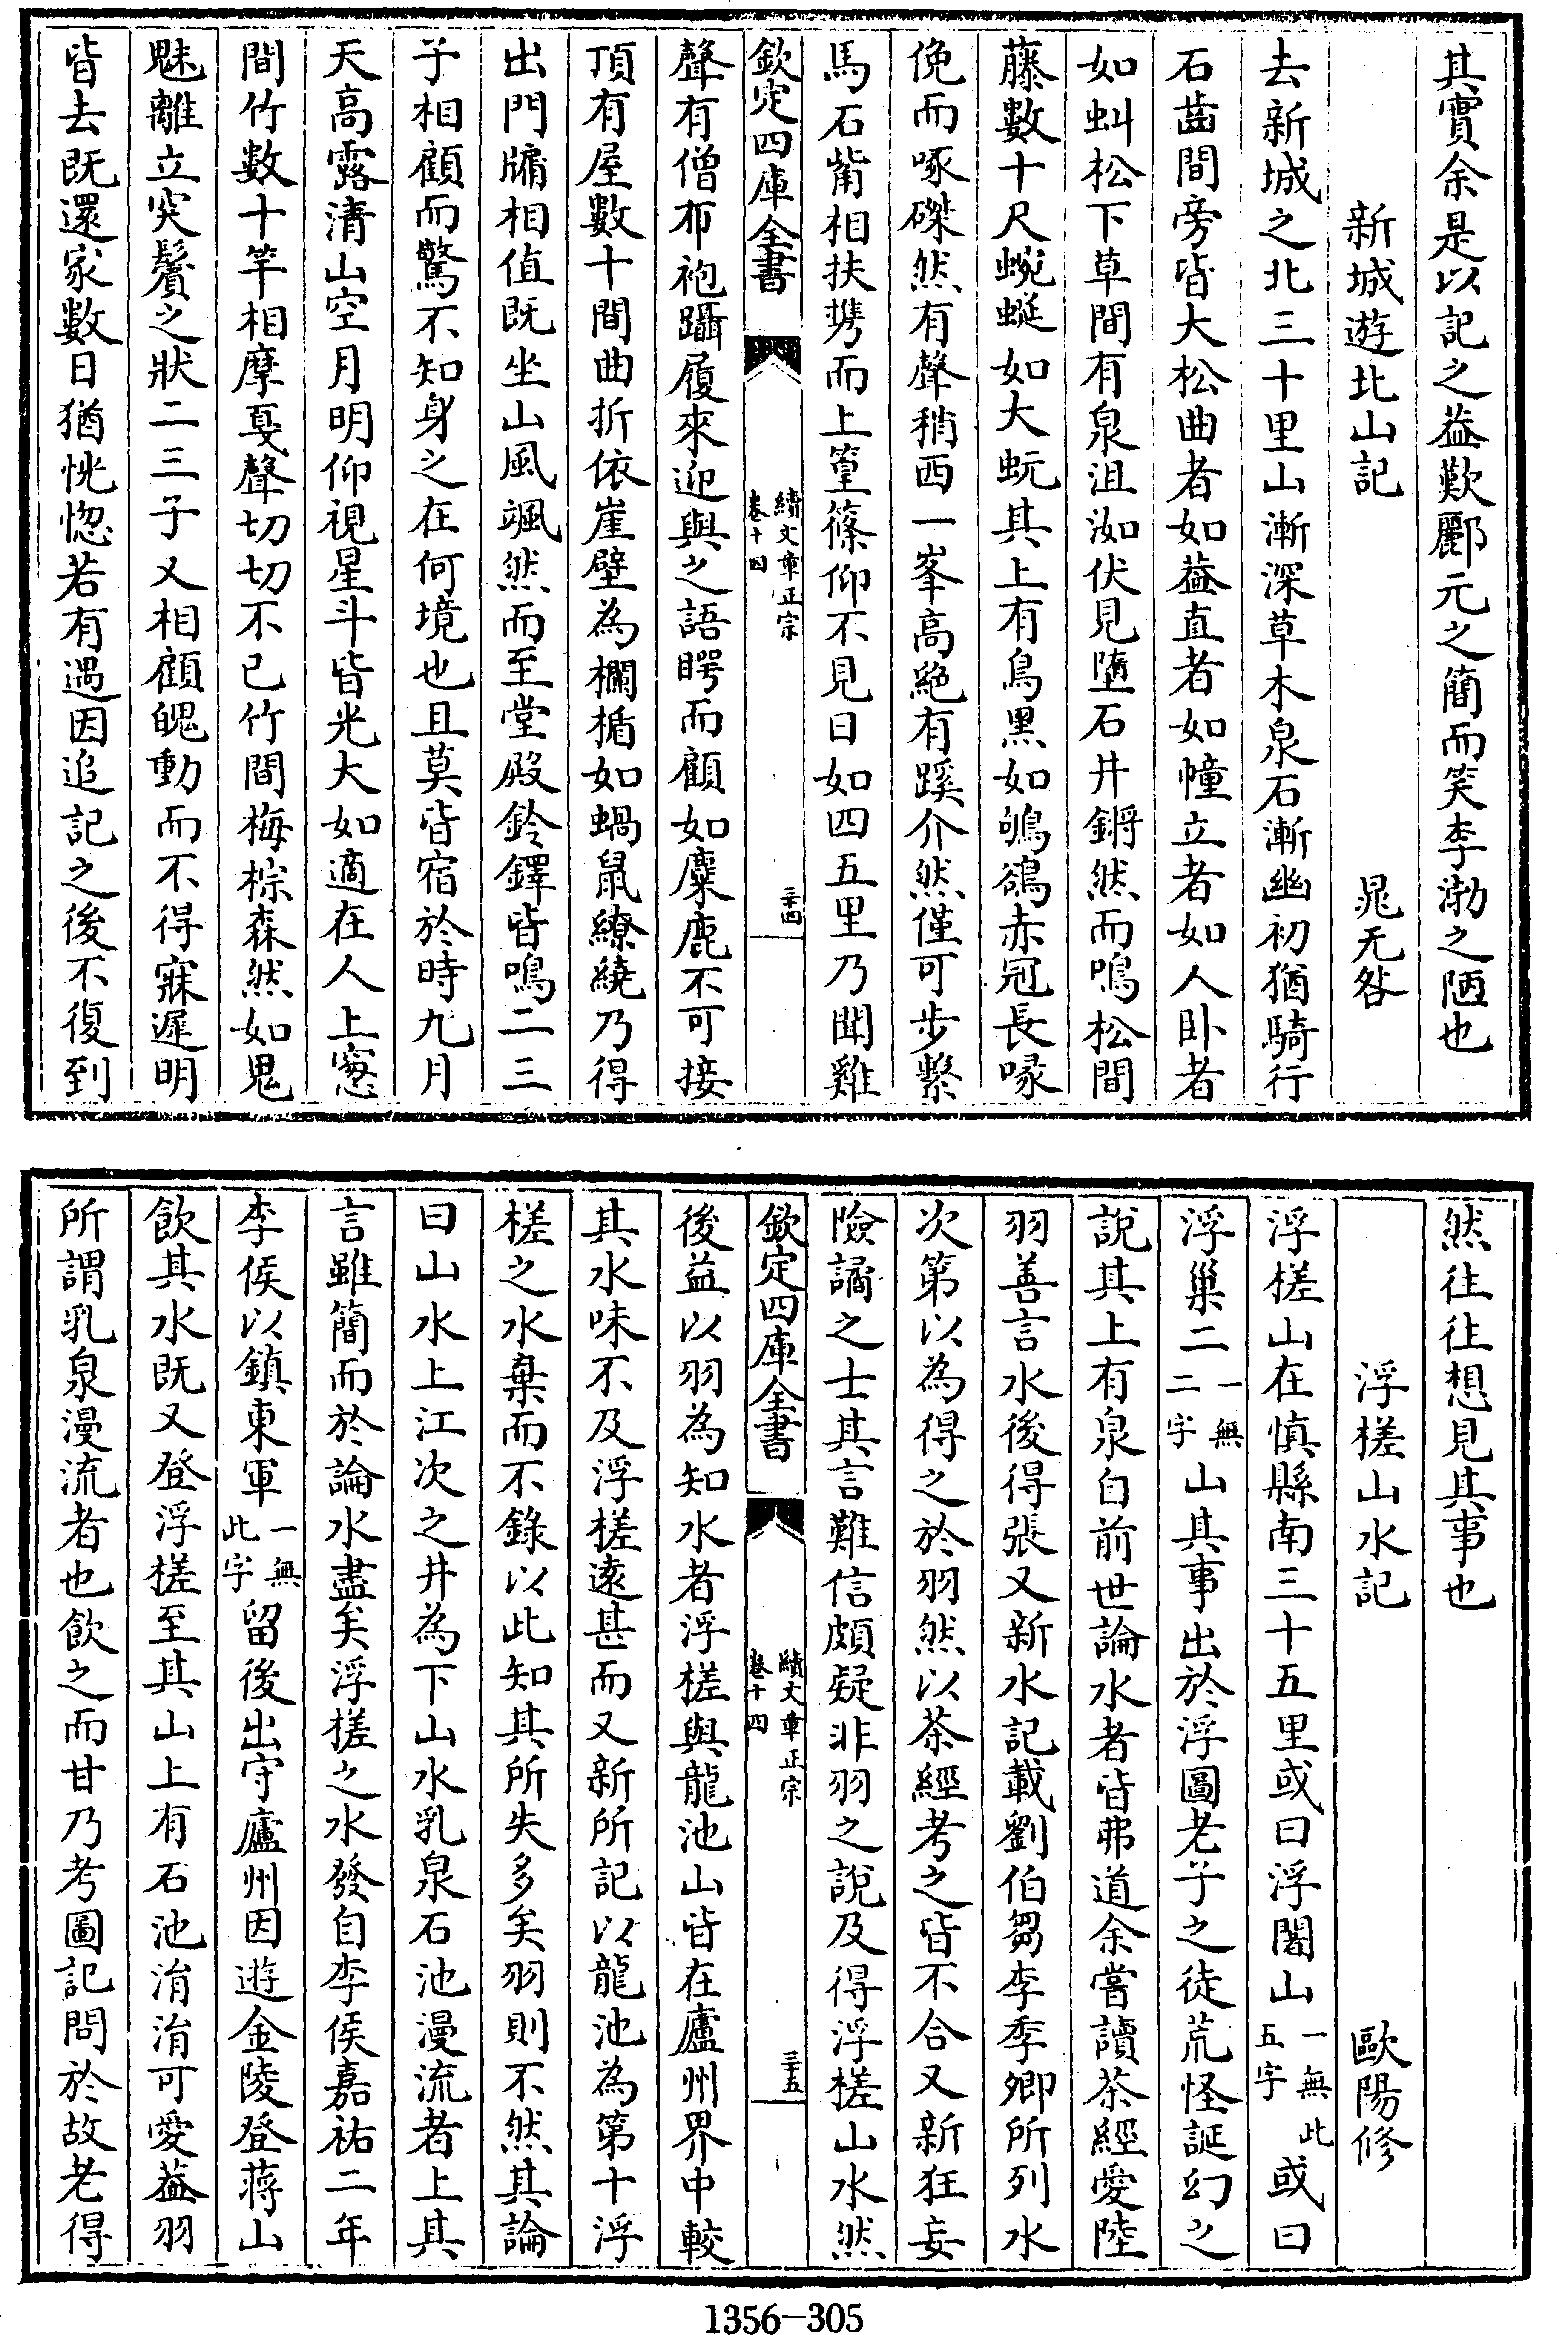 其實余是以記之葢歎酈元之簡而笑李渤之陋也
新城遊北山記　晁无咎
去新城之北三十里山漸深草木泉石漸幽初猶騎行
石齒間旁皆大松曲者如葢直者如幢立者如人卧者
如虯松下草間有泉沮洳伏見墮石井鏘然而鳴松間
藤數十尺蜿蜒如大蚖其上有鳥黑如鴝鵒赤冠長喙
俛而啄磔然有聲稍西一峯高絶有蹊介然僅可步繫
馬石觜相扶携而上篁篠仰不見日如四五里乃聞雞
欽定四庫全書
續文章正宗
卷十四
三十四
聲有僧布袍躡履來迎與之語𥈭而顧如麋鹿不可接
頂有屋數十間曲折依崖壁為欄楯如蝸鼠繚繞乃得
出門牖相值既坐山風颯然而至堂殿鈴鐸皆鳴二三
子相顧而驚不知身之在何境也且莫皆宿於時九月
天高露清山空月明仰視星斗皆光大如適在人上窻
間竹數十竿相摩戛聲切切不已竹間梅棕森然如鬼
魅離立突鬢之狀二三子又相顧魄動而不得寐遲明
皆去既還家數日猶恍惚若有遇因追記之後不復到
然往往想見其事也
浮槎山水記　歐陽修
浮槎山在慎縣南三十五里或曰浮闍山一無此五字或曰
浮巢二一無二字山其事出於浮圖老子之徒荒怪誕幻之
說其上有泉自前世論水者皆弗道余嘗讀茶經愛陸
羽善言水後得張又新水記載劉伯芻李季卿所列水
次第以為得之於羽然以茶經考之皆不合又新狂妄
險譎之士其言難信頗疑非羽之說及得浮槎山水然
欽定四庫全書
續文章正宗
卷十四
三十五
後益以羽為知水者浮槎與龍池山皆在廬州界中較
其水味不及浮槎遠甚而又新所記以龍池為第十浮
槎之水棄而不錄以此知其所失多矣羽則不然其論
曰山水上江次之井為下山水乳泉石池漫流者上其
言雖簡而於論水盡矣浮槎之水發自李侯嘉祐二年
李侯以鎮東軍一無此字留後出守廬州因遊金陵登蔣山
飲其水既又登浮槎至其山上有石池涓涓可愛葢羽
所謂乳泉漫流者也飲之而甘乃考圖記問於故老得
1356-305